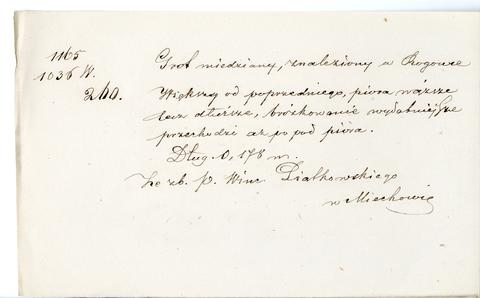 1165
1036 W.
260.
Grot miedziany, znaleziony w Rogowie
Większy od poprzedniego, pióra węższe
lecz dłuższe, bróżkowanie wydatniejsze
przechodzi aż po pod pióra.
Dług. 0,178 m.
Ze zb. p. Winc. Piątkowskiego
w Miechowie